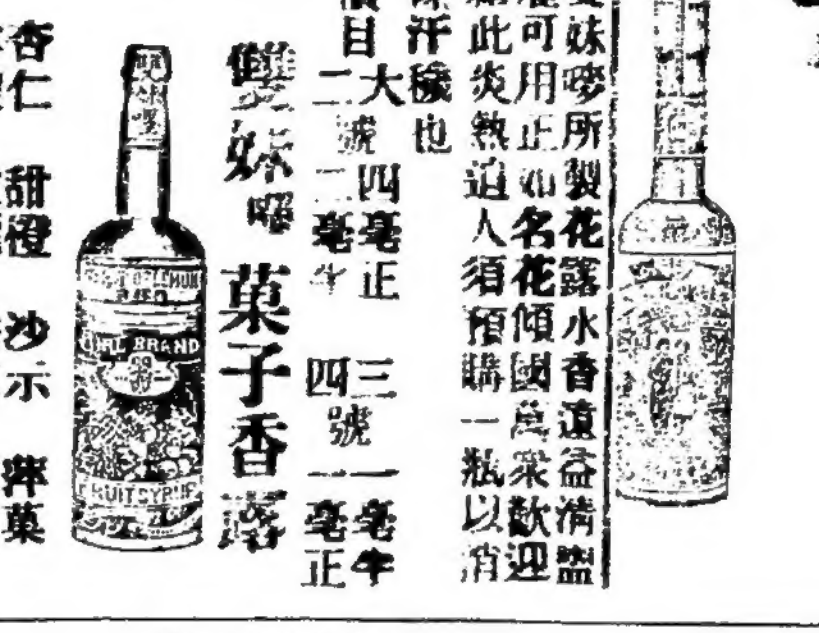 妹嘜所製花露水香遠益清
可用正如名花傾國萬衆歡迎
此炎熱迫人須預購一瓶以消
汗穢也
目
大 四毫正 三 一毫半
號 號
二 二毫半 四 一毫正
雙妹嘜菓子香露
雙妹嘜
BRAND
FRUIT SYRUP
杏仁 甜橙 沙示 菓